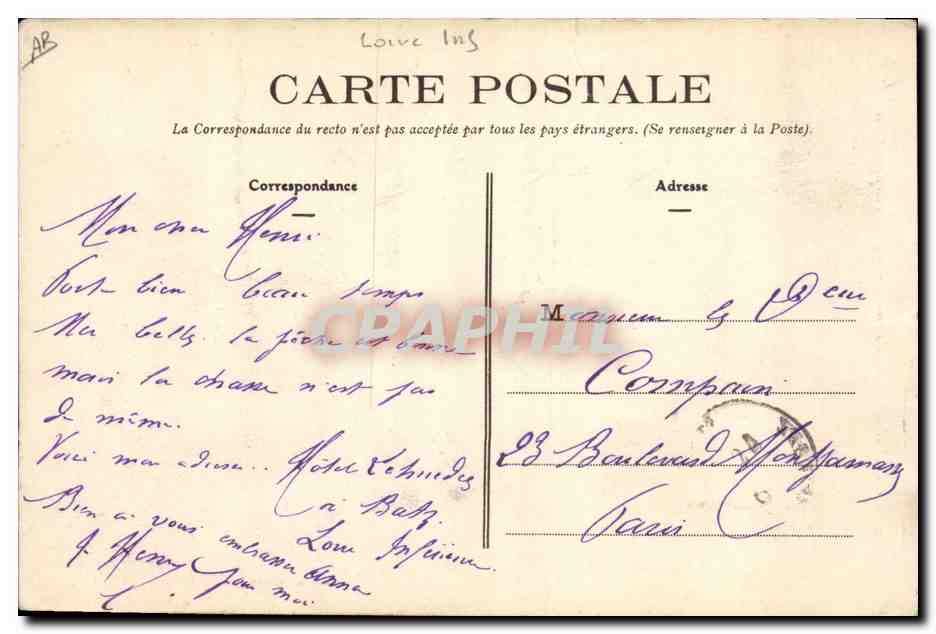 AB
Loire Inf
CARTE POSTALE
La Correspondance du recto n'est pas acceptée par tous les pays étrangers. (Se renseigner à la Poste).
Correspondance
Adresse
Mon cher Henri
Porte bien beau temps
Mer belle. la pêche est bonne
mais la chasse n'est pas
de même.
Voici mon adresse.. Hôtel Lehuédé
à Batz
Loire Inférieure.
Bien à vous embrasser Anna
& Henry pour moi
Monsieur le Dcteur
Compain
23 Boulevard Montparnasse
Paris
CPAPHIL